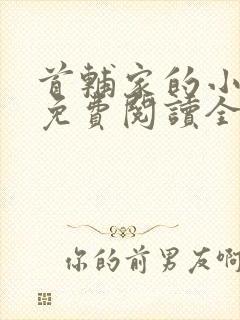 首輔家的小
免費閱讀全
你的前男友啊